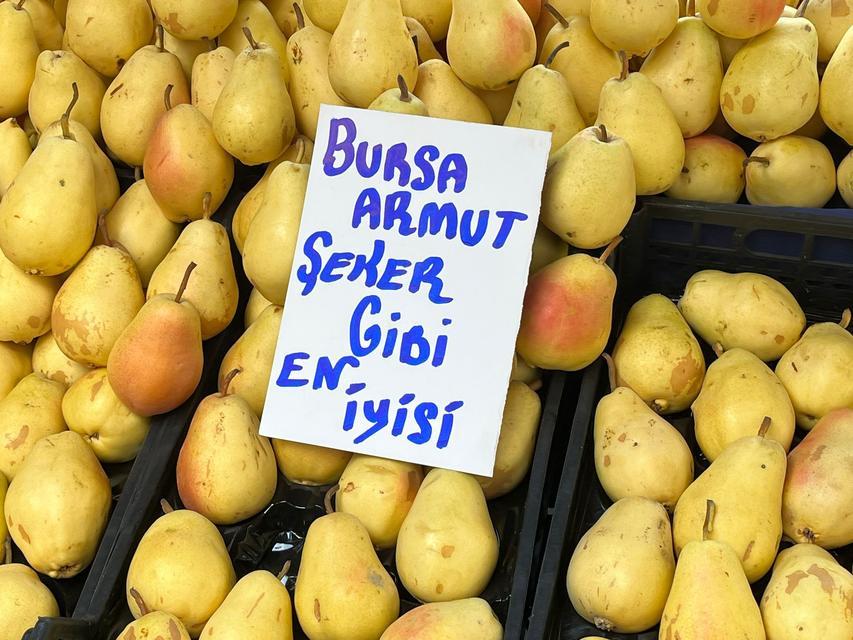 BURSA
ARMUT
ŞEKER
GİBİ
EN
İYİSİ